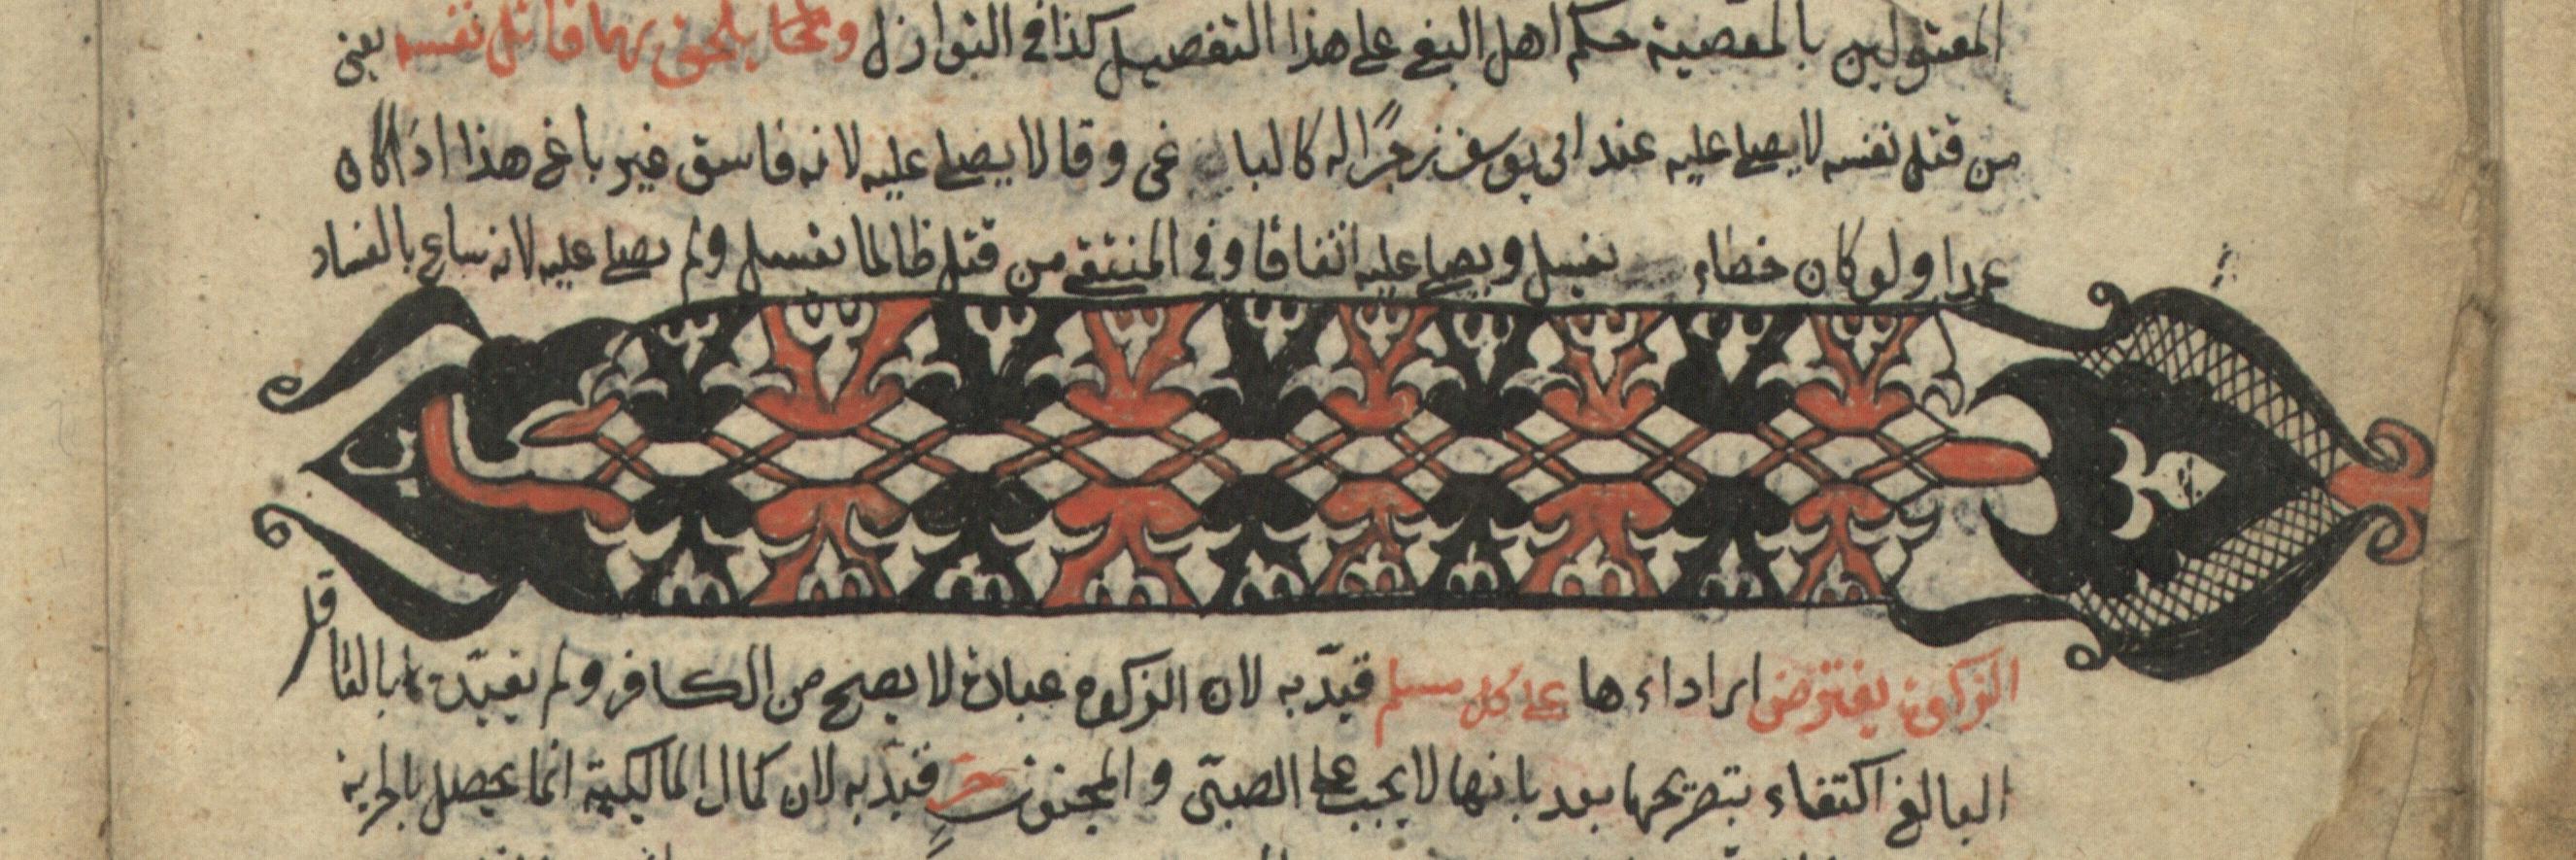 المقتولين بالمعصية حكم اهل البغي على هذا التفصيل كذا في النوازل وممّا يلحق بهما قاتل نفسه يعني
من قتل نفسه لا يصلى عليه عند ابى يوسف زجرًا له كالبا غى وقالا يصلى عليه لانه فاسق غير باغ هذا اذا كان
عمدا ولو كان خطاء يغسل ويصلى عليه اتفاقا وفى المنتقى من قتل ظالما يغسل ولم يصلى عليه لانه ساع بالفساد
الزكوة يفترض اداءها على كل مسلم قيّد به لان الزكوة عبادة لا يصح من الكافر ولم يقيّد بالعاقل
البالغ اكتفاء بتصريحها بعد بانها لا يجب على الصبىّ والمجنون حرّ قيّد به لان كمال المالكية انما يحصل بالحرية